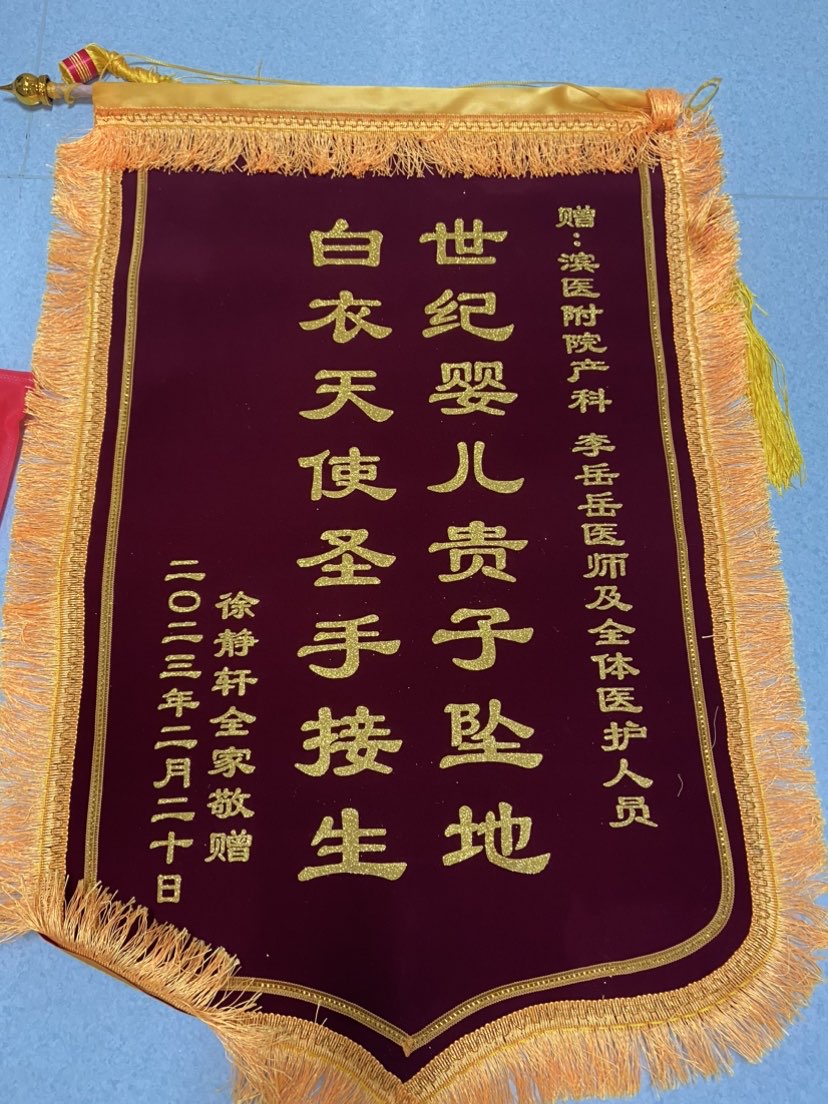 赠：滨医附院产科 李岳岳医师及全体医护人员
世纪婴儿贵子坠地
白衣天使圣手接生
徐静轩全家敬赠
二〇二三年二月二十日